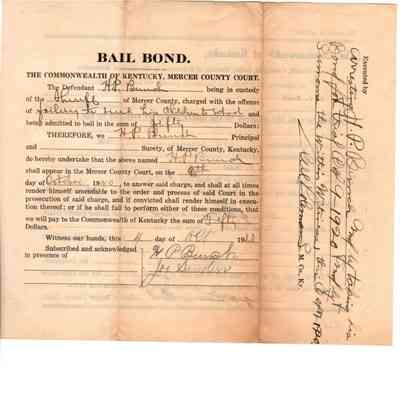 BAIL BOND.
THE COMMONWEALTH OF KENTUCKY, MERCER COUNTY COURT.
The Defendant H.P. Bunch being in custody
of the Sheriff of Mercer County, charged with the offense
of failing to send his children to school and
being admitted to bail in the sum of Fifty Dollars:
THEREFORE, we H P Bunch Principal
and Surety, of Mercer County, Kentucky,
do hereby undertake that the above named H P Bunch
shall appear in the Mercer County Court, on the
day of October 1920, to answer said charge, and shall at all times
render himself amenable to the order and process of said Court in the
prosecution of said charge, and if convicted shall render himself in execu-
tion thereof; or if he shall fail to perform either of these conditions, that
we will pay to the Commonwealth of Kentucky the sum of Fifty
Dollars.
Witness our hands, this 4 day of Oct 1920
Subscribed and acknowledged
in presence of
H P Bunch
Joe
Executed by
arresting H. P. Bunch and taking his
Bond for Oct 1920 and by
Summons the within Witnesses, this Oct 1920
S. M. Co. Ky.